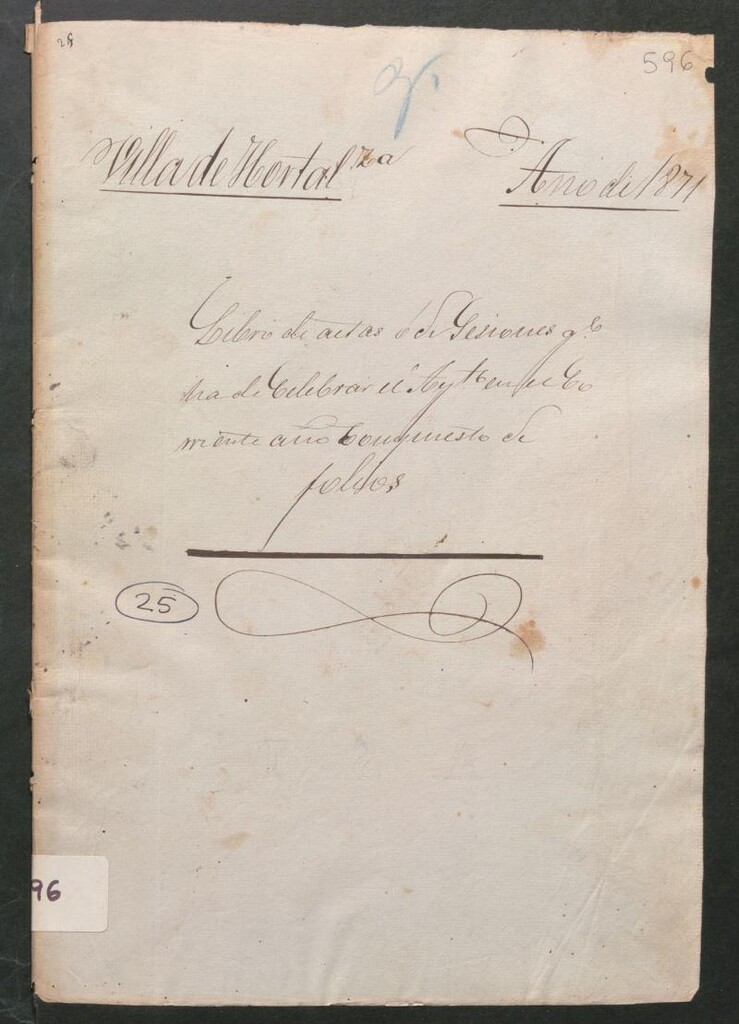 28
596
Villa de Hortalza
Año de 1871
Libro de actas ó de Sesiones qe
ha de Celebrar el Aytto en el Co
rriente año Compuesto de
folios
25
96